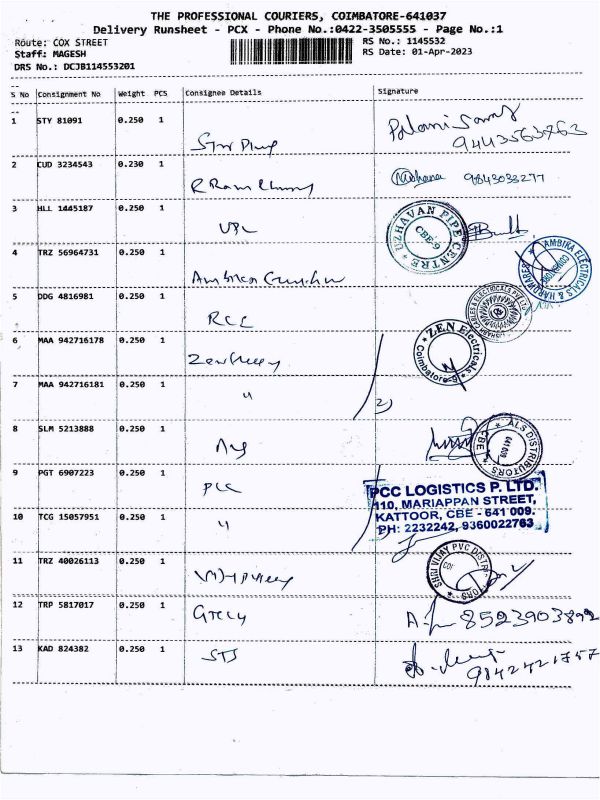 THE PROFESSIONAL COURIERS, COIMBATORE-641037
Delivery Runsheet - PCX - Phone No.:0422-3505555 - Page No.:1
Route: COX STREET
RS No.: 1145532
Staff: MAGESH
RS Date: 01-Apr-2023
DRS No.: DCJB114553201
S No Consignment No Weight PCS Consignee Details Signature
1 STY 81091 0.250 1
9443563763
2 CUD 3234543 0.230 1
9843033277
3 HLL 1445187 0.250 1
UZHAVAN PIPE CENTRE CBE-9
4 TRZ 56964731 0.250 1
AMBIKA ELECTRICALS & HARDWARES
5 DDG 4816981 0.250 1 RCC
6 MAA 942716178 0.250 1
ZEN Electricals Coimbatore-9
7 MAA 942716181 0.250 1 "
2)
8 SLM 5213888 0.250 1
ALS DISTRIBUTORS CBE 641009
9 PGT 6907223 0.250 1 PCC
PCC LOGISTICS P. LTD.
110, MARIAPPAN STREET,
10 TCG 15057951 0.250 1 "
KATTOOR, CBE - 641 009.
PH: 2232242, 9360022763
11 TRZ 40026113 0.250 1
SHRI VIJAY PVC DISTRIBUTORS
12 TRP 5817017 0.250 1
8523903892
13 KAD 824382 0.250 1 STJ
9842421757